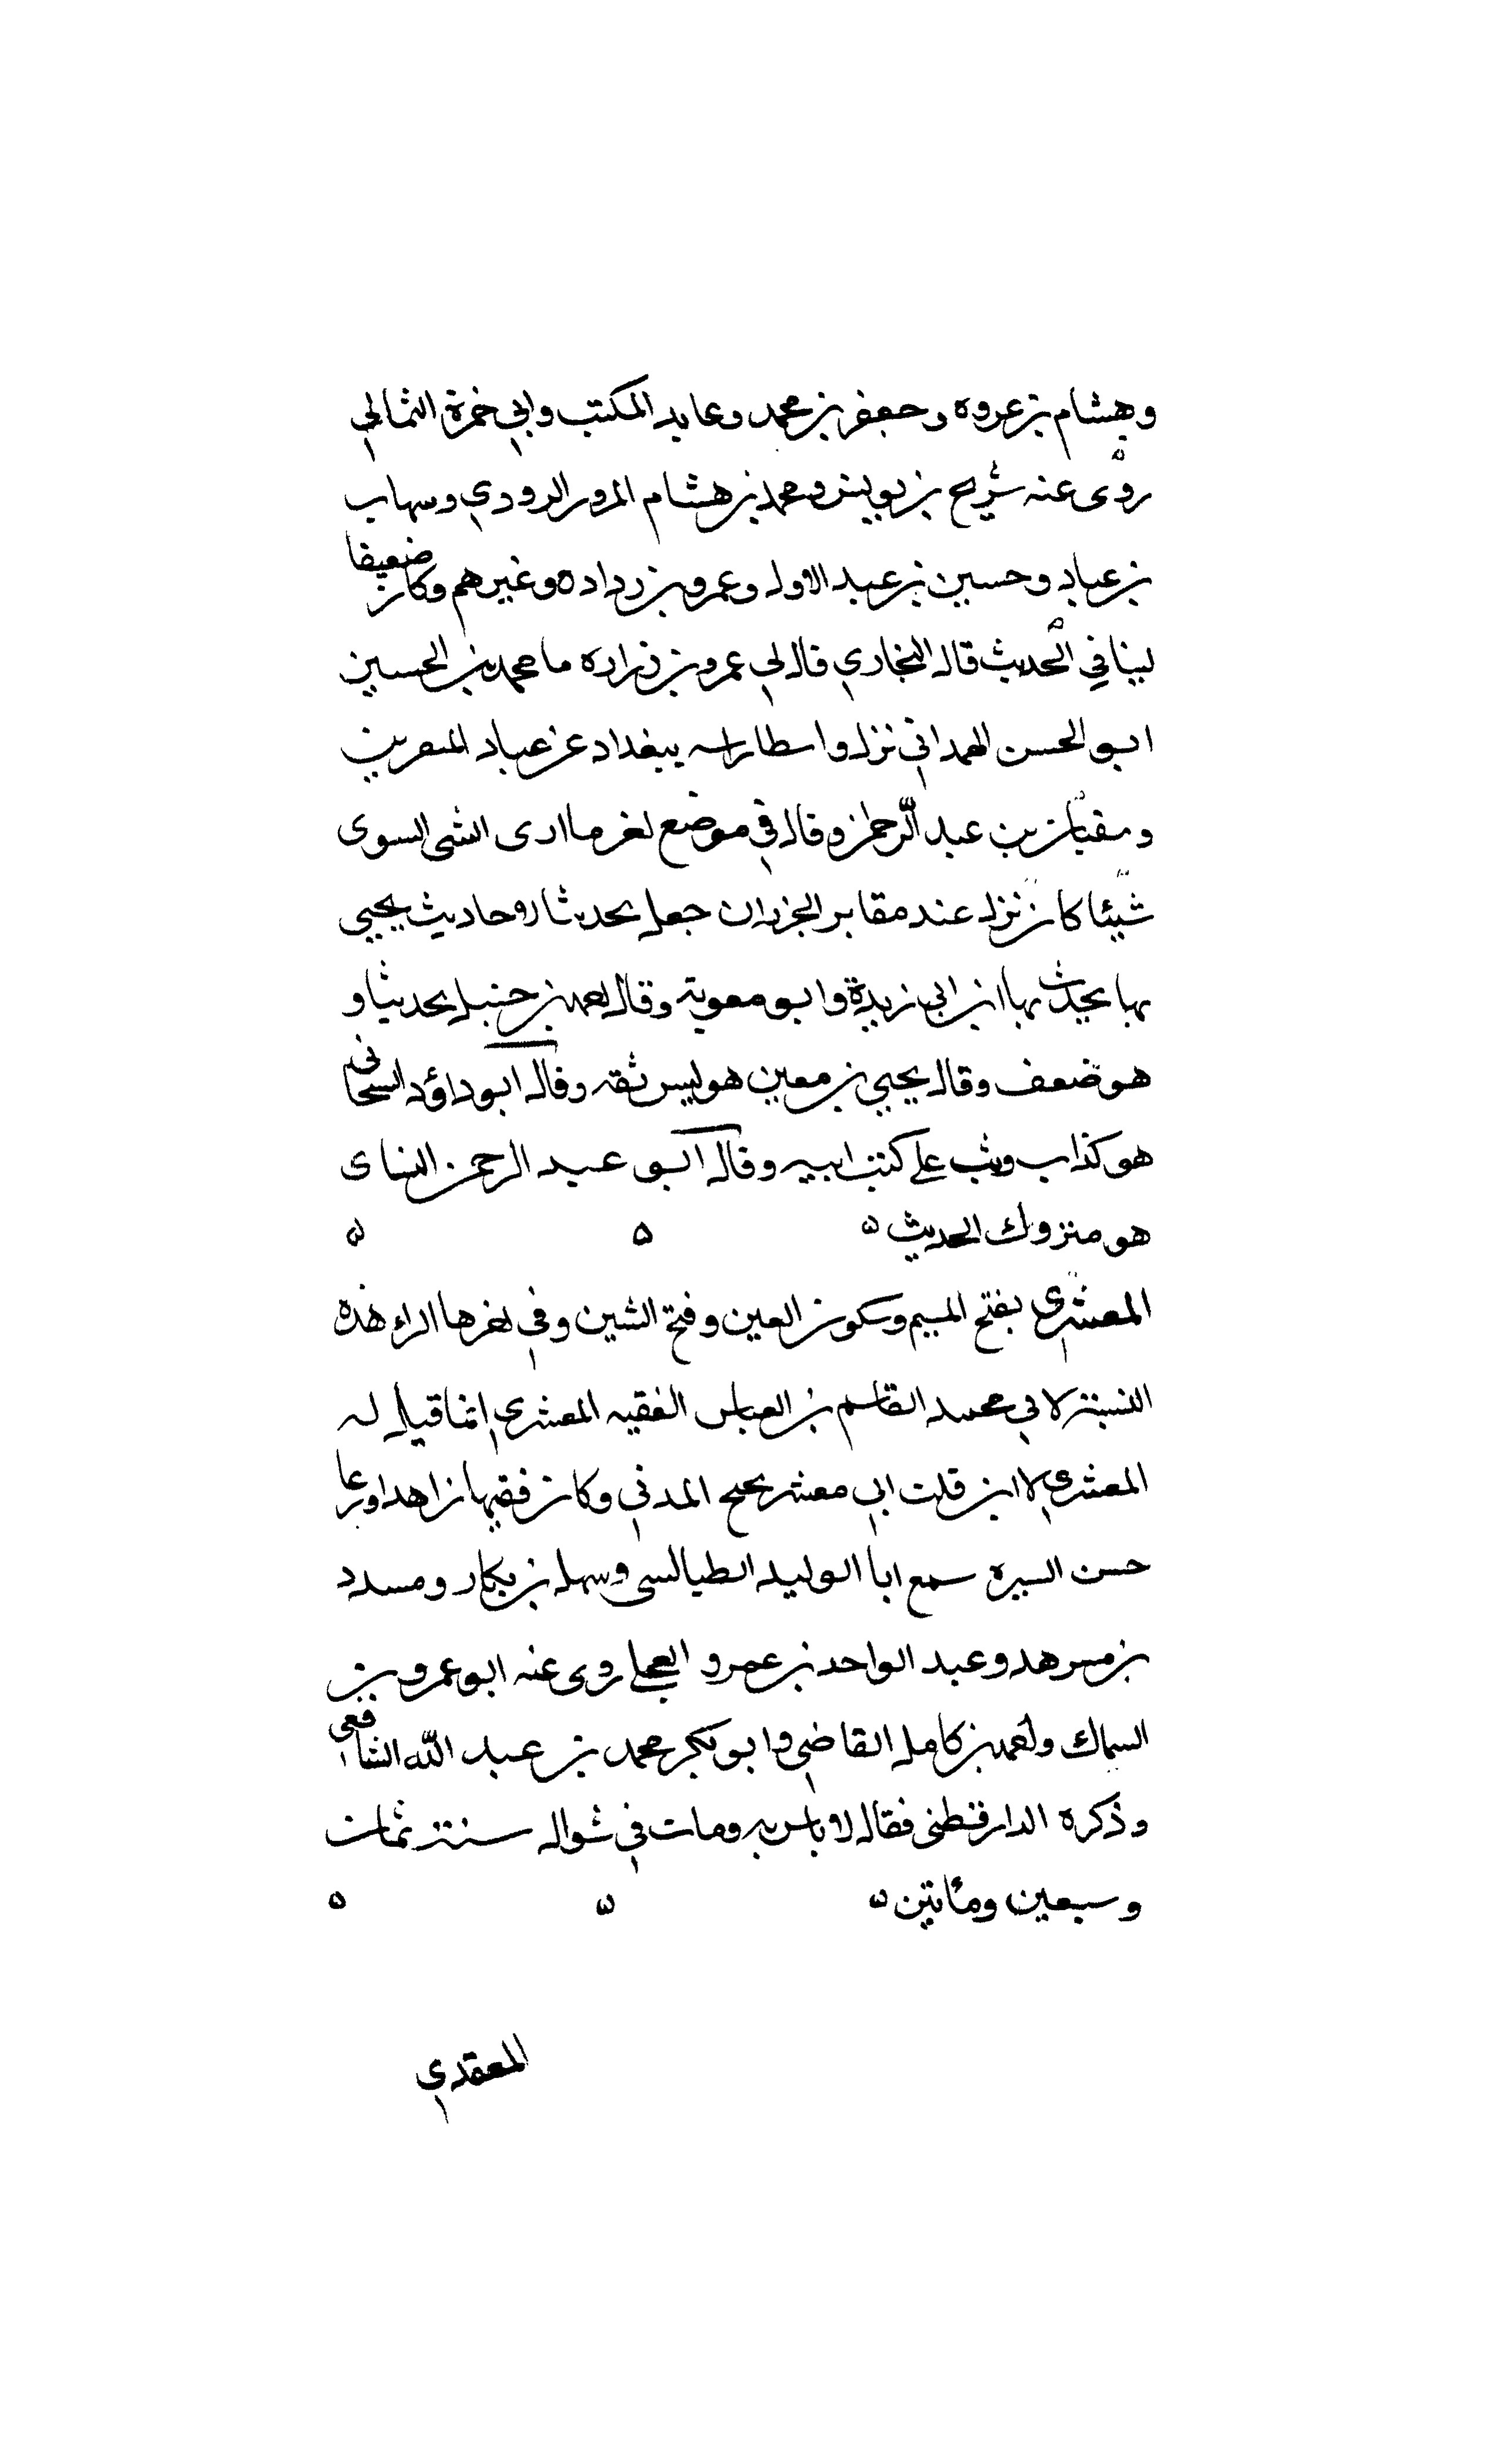 وهشام بن عروه وجعفر بن محمد وعايد المكتب وابي حمزة الثمالي
روى عنه شريح بن يونس ومحمد بن هشام المرور الرودي وسهاب
بن عباد وحسين بن عبد الاول وعمرو بن زراده وغيرهم وكان ضعيفا
لينا في الحديث قال البخاري قال لي عمرو بن زراره ما محمد بن الحسين
ابو الحسن الهمداني نزل واسطا ببغداد عن عباد المنعرى
بن عبد الرحمن وقال في موضع اخر ما ارى الشى السوى
شيئا كان نزل عند مقابر الخزران جعل يحدثنا حاديث يحيى
بها يحدث بها ابن ابي زيدة وابو معوية وقال احمد بن حنبل يحدثنا و
هو ضعف وقال يحيى بن معين هو ليس ثقه وقال ابو داؤد السحتانى
هو كذاب وثب على كتب ابيه وقال ابو عبد الرحمن النساى
هو متروك الحديث ه ه ه
المعشرى بفتح الميم وسكون العين وفتح الشين وفي اخرها الراء هذه
النسبة لابي محمد القاسم بن العباس الفقيه المعشري انما قيل له
المعشري لا ابن قلت ابي معشر المدني وكان فقيها زاهدا ورعا
حسن السيره سمع ابا الوليد الطيالسى وسهل بن بكار ومسدد
بن مسرهد وعبد الواحد بن عمرو العجلي روى عنه ابو عمرو بن
السماك واحمد بن كامل القاضي وابو بكر محمد بن عبد الله الشافعي
وذكره الدارقطنى فقال لا باس به ومات في شوال سنة ثمان
وسبعين ومائتين ه ه ه
المعقدي